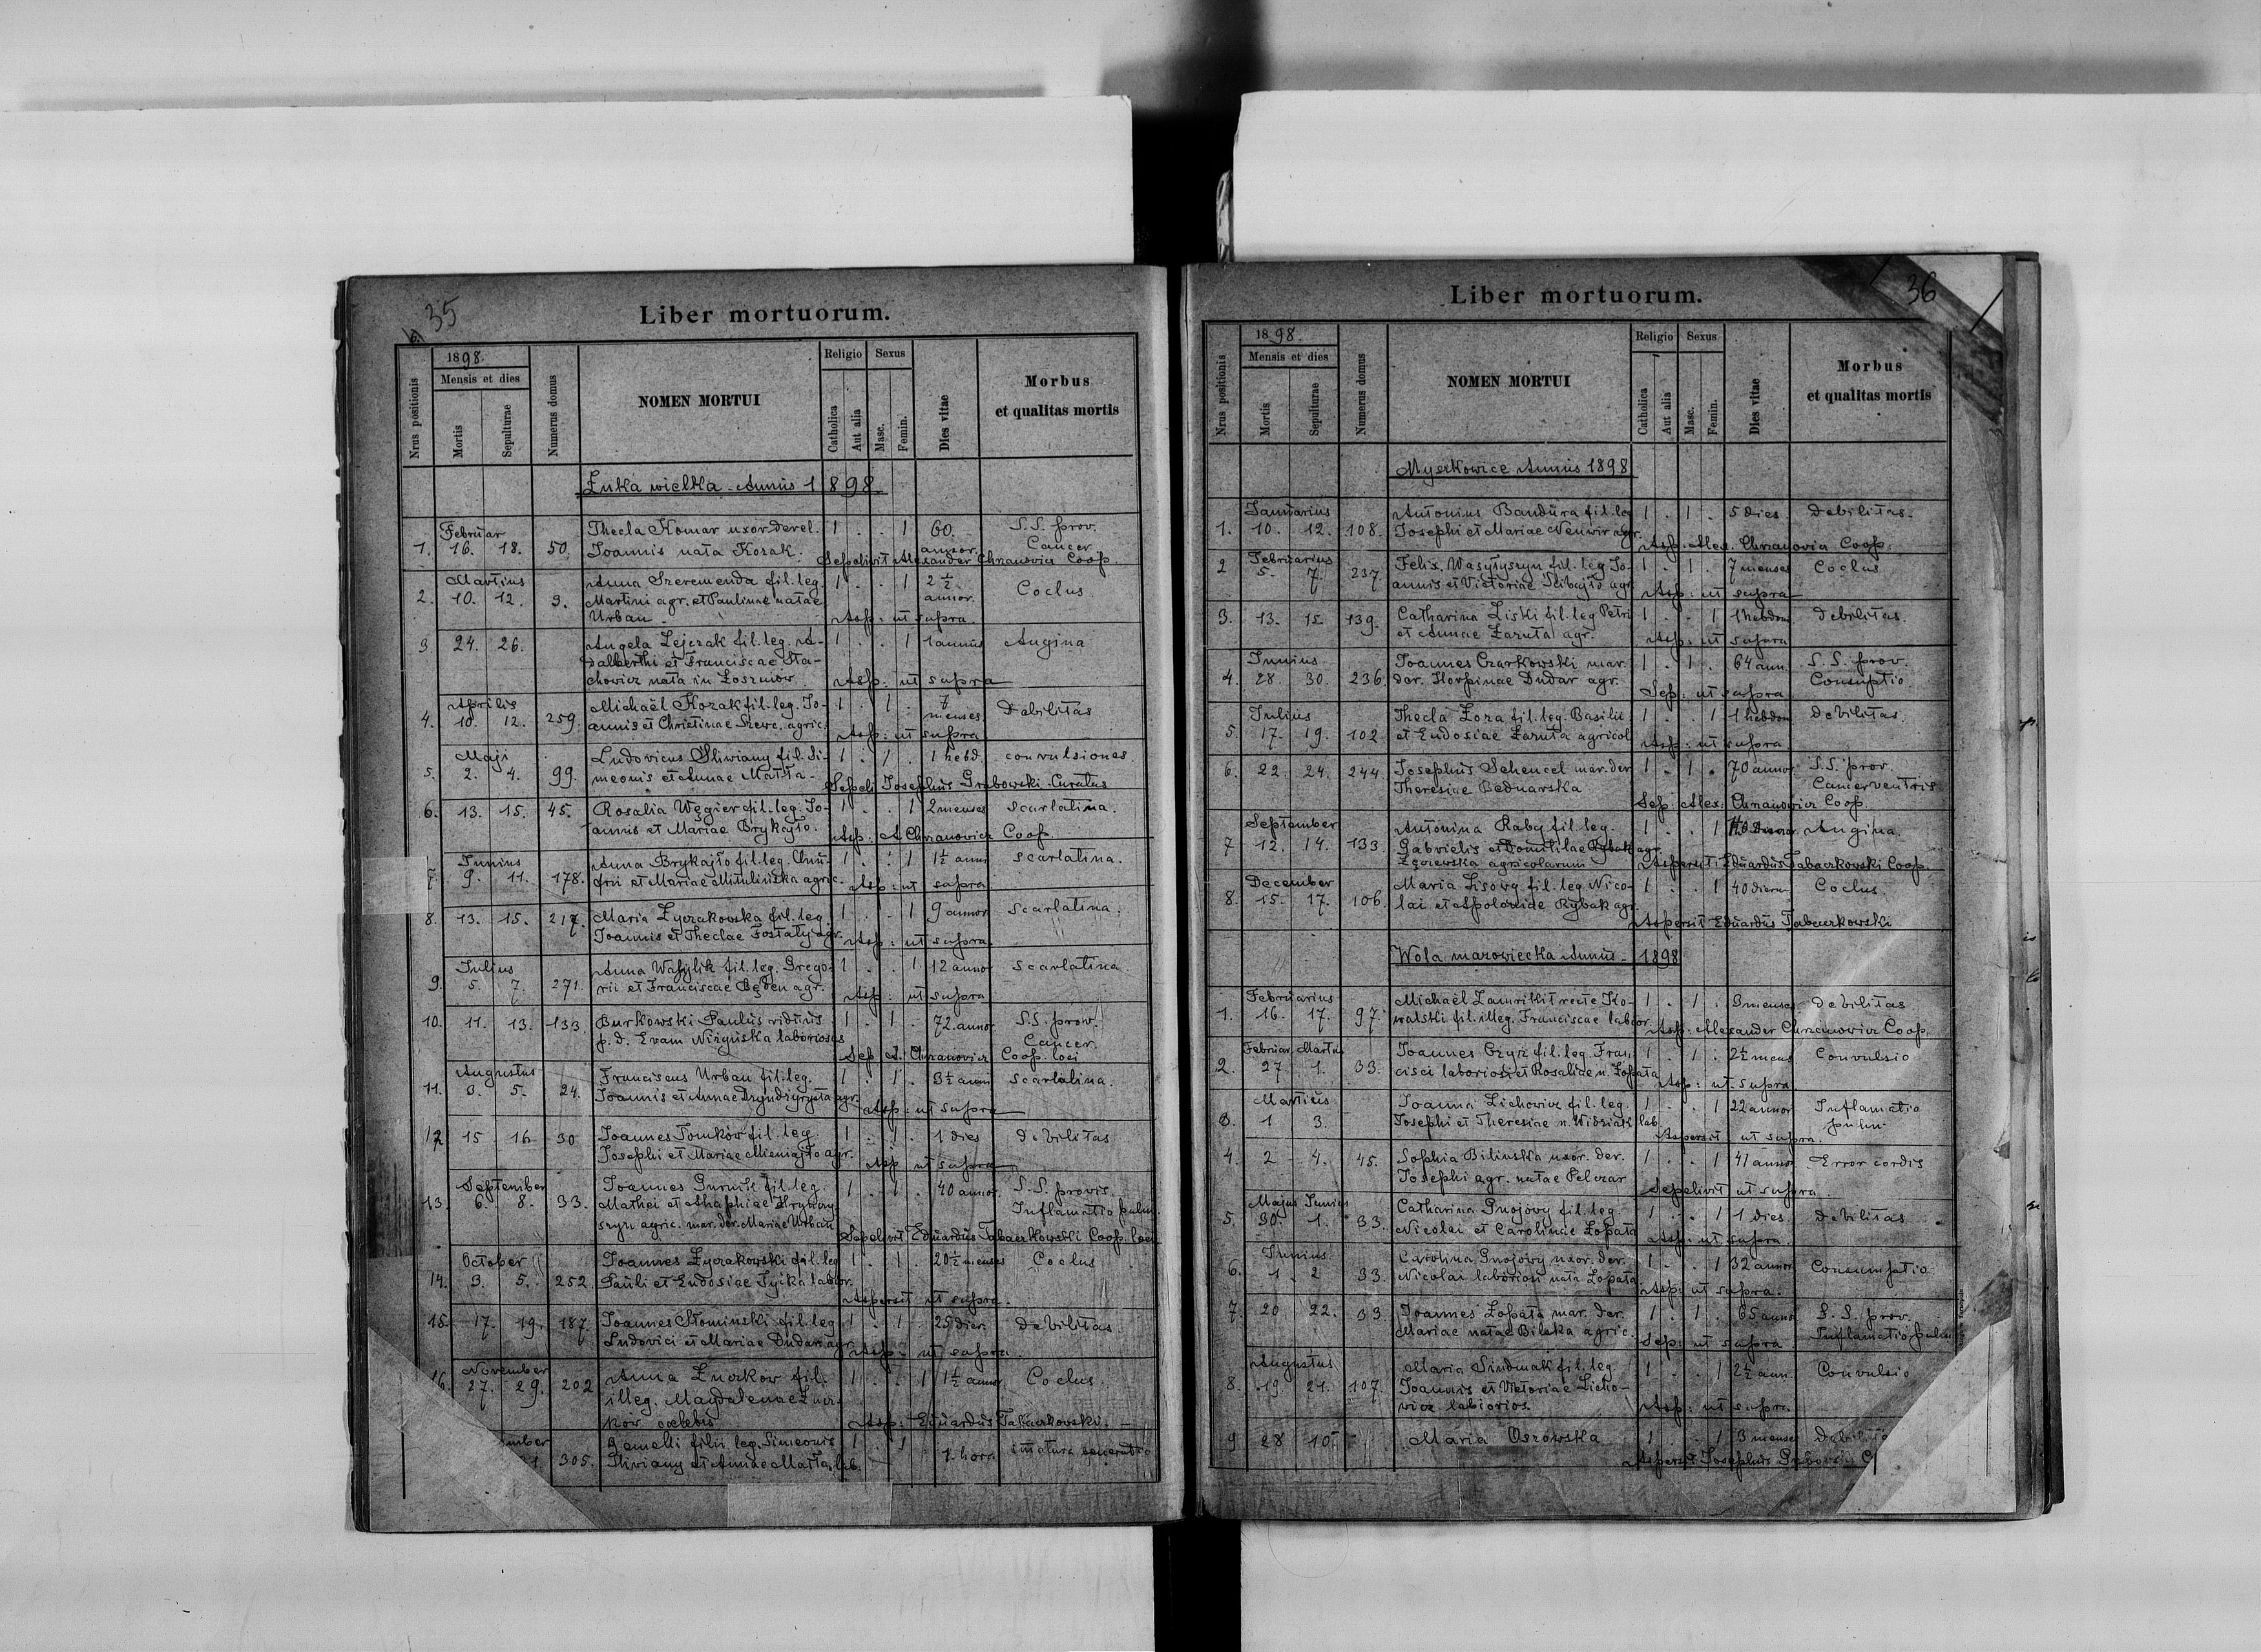 35
Liber mortuorum.
Nrus positionis
1898.
Mensis et dies
Mortis
Sepulturae
Numerus domus
NOMEN MORTUI
Religio
Catholica
Aut alia
Sexus
Masc.
Femin.
Dies vitae
Morbus
et qualitas mortis
Annus 1898
Februar
Thecla Komar uxor derel. 1 . . 1 60. S.S. prov.
1. 16. 18. 50. Joannis nata Kozak. annor. Cancer
Sepelivit Alexander Chranovicz Coop.
Martius
Anna Szeremenda fil. leg. 1 . . 1 2 1/2 Coclus
2. 10. 12. 3. Martini agr. et Paulinae natae annor.
Urban Asp: ut supra
3 24. 26. Angela Lejczak fil. leg. A- 1 . . 1 1 annus Angina
dalberthi et Franciscae Sta-
chowicz nata in Łoszniow Asp: ut supra
Aprilis
Michaël Kozak fil. leg. Jo- 1 . 1 . 7 Debilitas
4. 10. 12. 259. annis et Christinae Szewc. agric. menses
Asp: ut supra
Maji
Ludovicus Śliwiany fil. Si- 1 . 1 . 1 hebd. convulsiones
5. 2. 4. 99. meonis et Annae Matła
Sepeli Josephus Grabowski Curatus
6. 13. 15. 45. Rosalia Węgier fil. leg. Jo- 1 . . 1 2 menses Scarlatina.
annis et Mariae Brykajło.
Asp: A Chranovicz Coop.
Junius
Anna Brykajło fil. leg. Onu- 1 . . 1 1 1/2 anni Scarlatina.
7. 9. 11. 178. frii et Mariae agric.
Asp: ut supra
8. 13. 15. 217. Maria Zyczakowska fil. leg. 1 . . 1 9 annor Scarlatina.
Joannis et Theclae Fostaty agr.
Asp: ut supra.
Julius
Anna Wasylik fil. leg. Grego- 1 . . 1 12 annor Scarlatina
9. 5. 7. 271. rii et Franciscae Będen agr.
Asp: ut supra
10. 11. 13. 133. Burkowski Paulus viduus 1 . 1 . 72 annor S.S. prov.
p. d. Evam laboriosus Cancer.
Sep A. Chranovicz Coop. loci
Augustus
Franciscus Urban fil. leg. 1 . 1 . 3 1/2 anni Scarlatina.
11. 3. 5. 24. Joannis et Annae agr.
Asp: ut supra
12 15 16 30 Joannes Tomków fil. leg 1 . 1 . 1 dies Debilitas
Josephi et Mariae Mieniajło agr.
Asp ut supra
September
Joannes fil. leg. 1 . 1 . 40 annor. S.S. provis.
13. 6. 8. 33. Mathei et Ahaphiae Inflamatio pulm.
szyn agric. mar. der. Mariae Urban
Sepelivit Eduardus Tabaczkowski Coop. loci
October
Joannes Zyczakowski fil. leg 1 . 1 . 20 1/2 menses Coclus
14. 3. 5. 252 Pauli et Eudosiae Tyika labor.
Aspersit ut supra.
15. 17. 19. 187 Joannes Słominski fil. leg 1 . 1 . 25 dier. Debilitas.
Ludovici et Mariae Dudar agr
Asp: ut supra
November
Anna Luczkow fil. 1 . . 1 1 1/2 annor. Coclus.
16. 27. 29. 202 illeg. Magdalenae Lucz-
kow celebis
Asp: Eduardus Tabaczkowski.
Gemelli filii leg. Simeonis 1 . 1 imatura
305. Śliwiany et Annae Matła lab. 1 hora
36
Liber mortuorum.
Nrus positionis
1898.
Mensis et dies
Mortis
Sepulturae
Numerus domus
NOMEN MORTUI
Religio
Catholica
Aut alia
Sexus
Masc.
Femin.
Dies vitae
Morbus
et qualitas mortis
Myszkowice Annus 1898
Januarius
Antonius Bandura fil. leg 1 . 1 . 5 dies Debilitas.
1. 10. 12. 108. Josephi et Mariae Neuwir agr.
Asp: Alex. Chranovicz Coop.
Februarius
Felix Wasyłyszyn fil. leg Jo- 1 . 1 . 7 menses Coclus
2 5. 7. 237. annis et Victoriae agr
Asp: ut supra
3. 13. 15. 139. Catharina Liski fil. leg Petri 1 . . 1 1 hebdom. Debilitas.
et Annae Zaruta agr.
Asp: ut supra
Junius
Joannes Czarkowski mar. 1 . 1 . 64 ann. S.S. prov.
4. 28. 30. 236. der. Horpinae Dudar agr. Consuptio
Sep: ut supra
Julius
Thecla Zora fil. leg. Basilii 1 . . 1 1 hebdom Debilitas.
5. 17. 19. 102. et Eudosiae Zaruta agricol
Asp: ut supra
6. 22. 24. 244 Josephus Schencel mar. der 1 . 1 . 70 annor S.S. prov.
Theresiae Bednarska Cancer ventris
Sep: Alex: Chranowicz Coop.
September
Antonina Raby fil. leg. 1 . . 1 Angina.
7 12. 14. 133. Gabrielis et Domitilae Rybak agr.
agricolarum
Aspersit: Eduardus Tabaczkowski Coop.
December
Maria Lisowy fil. leg Nico- 1 . . 1 40 dierum Coclus.
8. 15. 17. 106. lai et Apoloniae Rybak agr.
Aspersit Eduardus Tabaczkowski
Wola mazowiecka Annus 1898
Februarius
Michaël recte Ko- 1 . 1 . 3 menses Debilitas
1. 16. 17. 97. walski fil. illeg. Franciscae labor.
Asp: Alexander Chranowicz Coop.
Februar. Martius
Joannes Czyż fil. leg. Fran- 1 . 1 . 2 1/2 mens Convulsio
2. 27 1. 33. cisci laboriosi et Rosaliae n. Łopata
Asp: ut supra
Martius
Joanna Lichowicz fil. leg. 1 . . 1 22 annor Inflamatio
3. 1 3. Josephi et Theresiae n. lab. pulm.
Aspersit ut supra.
4. 2 4. 45. Sophia Bilinska uxor. der. 1 . . 1 41 annor Error cordis
Josephi agr. natae Pelczar
Sepelivit ut supra.
Majus Junius
Catharina Gnojowy fil. leg. 1 . . 1 1 dies. Debilitas
5. 30. 1. 33. Nicolai et Carolinae Łopata
Asp: ut supra.
Junius
Carolina Gnojowy uxor. der. 1 . . 1 32 annor Consumptio
6. 1 2 33. Nicolai laboriosi nata Łopata
Asp: ut supra.
7 20 22. 33 Joannes Łopata mar. der. 1 . 1 . 65 annor S.S. prov.
Mariae natae Bileka agric. Inflamatio pulm
Sep: ut supra
Augustus
Maria Sindmak fil. leg 1 . . 1 2 1/2 ann. Convulsio
8. 19. 21. 107. Joannis et Victoriae Licho-
vicz labiorios.
Asp: ut supra
9 28 10 Maria Ozowska 1 . . 1 3 menses
Aspersit Josephus